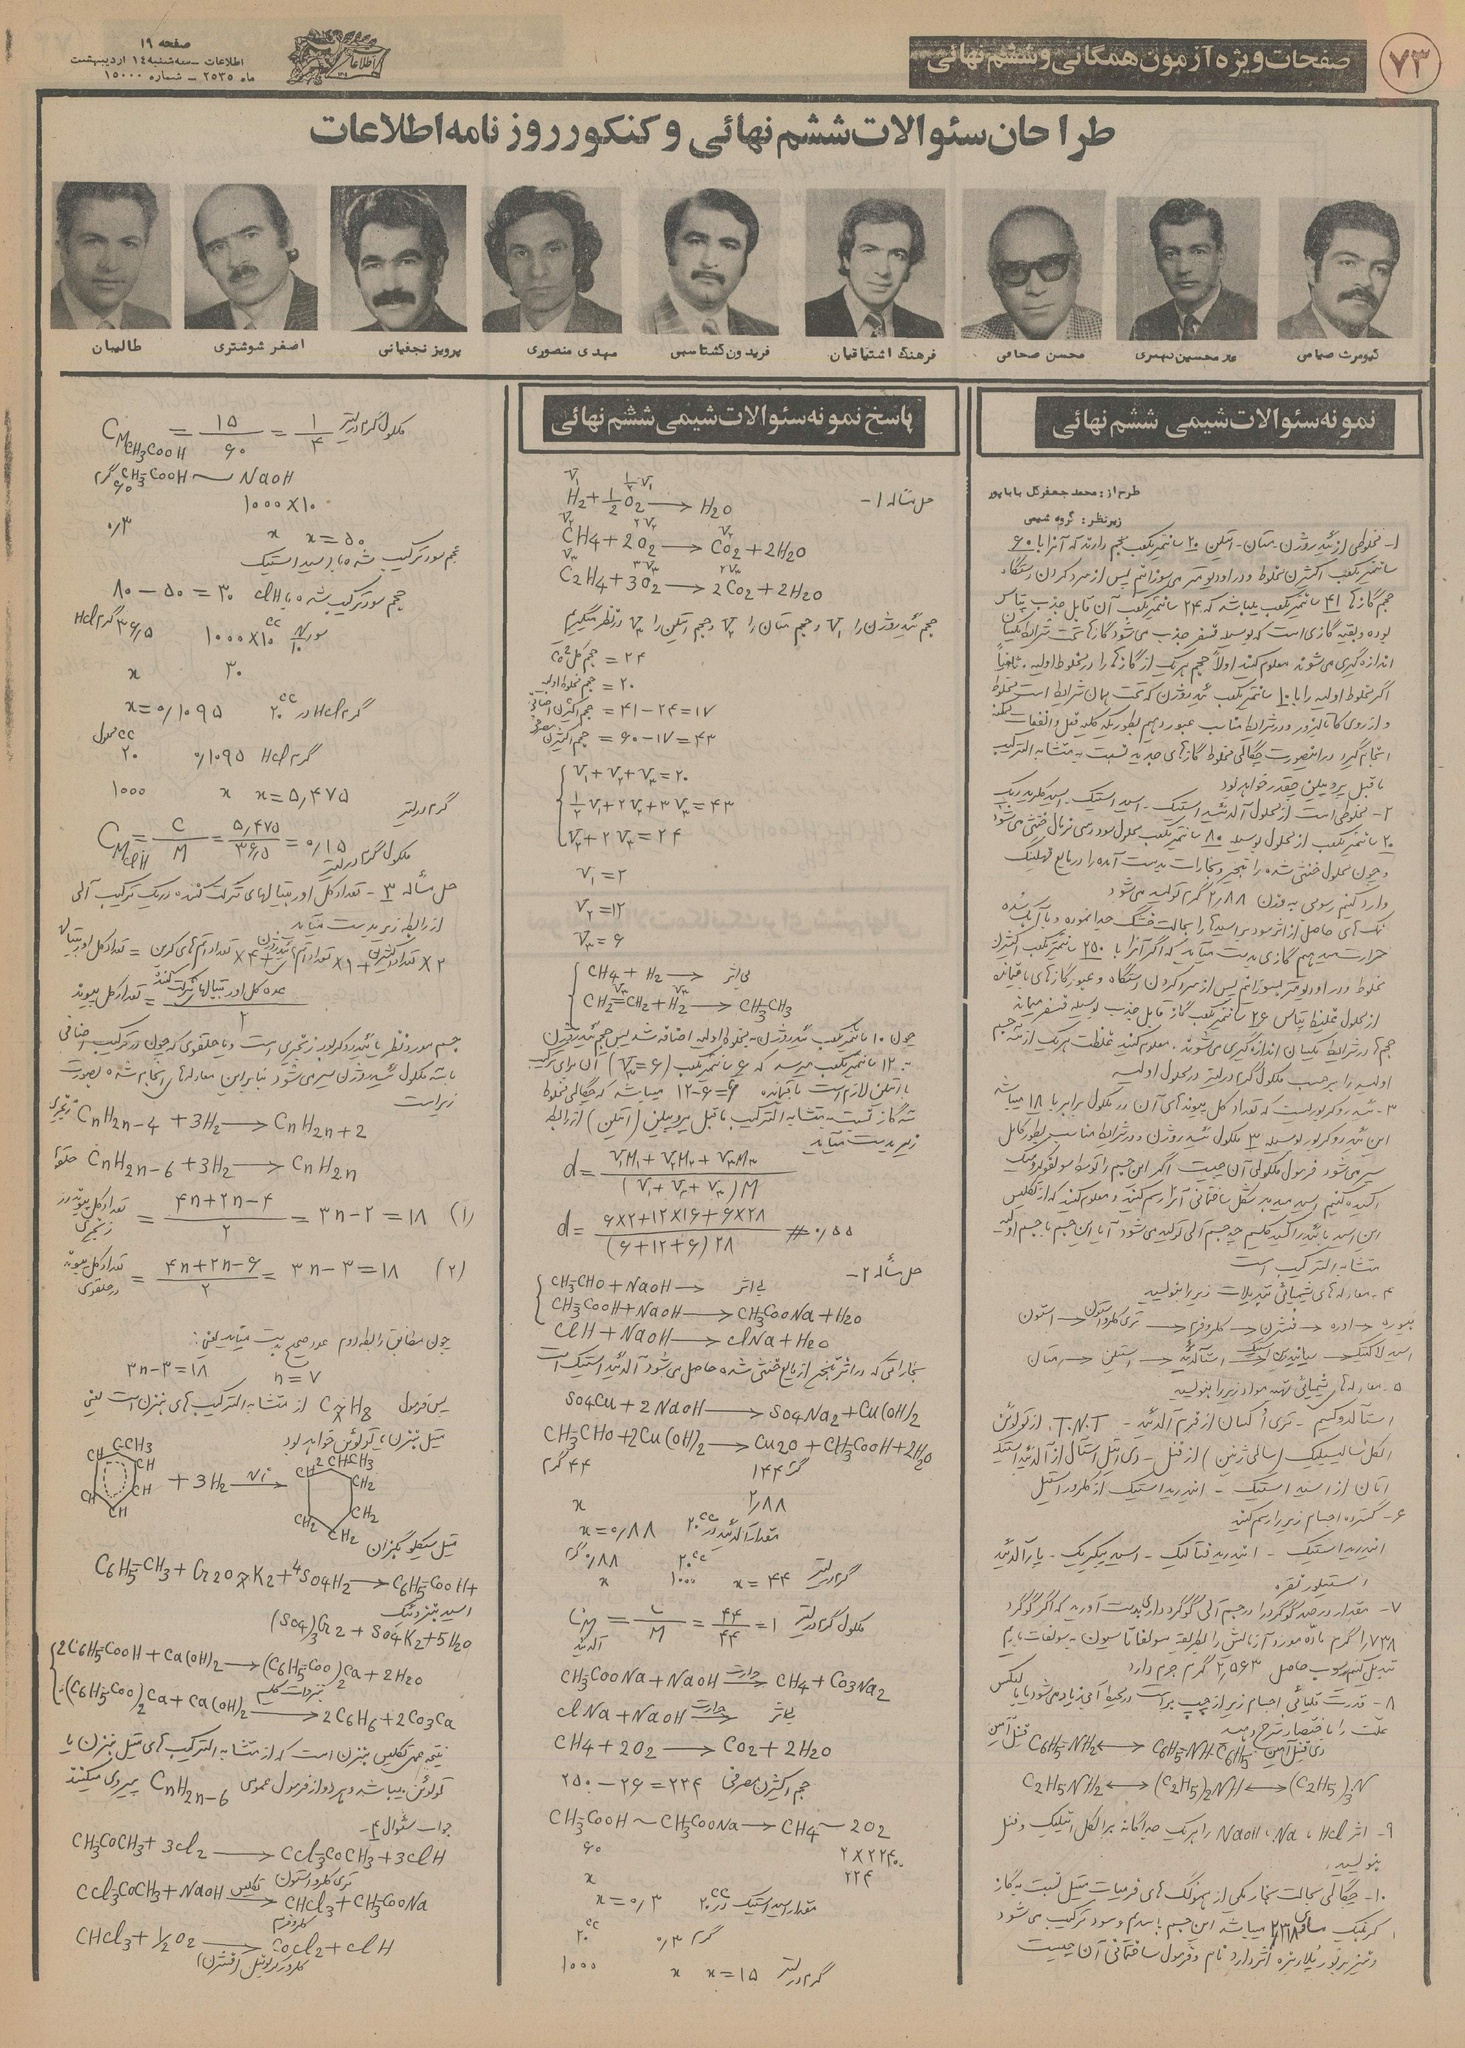 ۷۳
صفحات ویژه آزمون همگانی و ششم نهائی
صفحه ۱۹
اطلاعات – سه‌شنبه ۱۴ اردیبهشت
ماه ۲۵۳۵ – شماره ۱۵۰۰۰
طراحان سئوالات ششم نهائی و کنکور روزنامه اطلاعات
کیومرث صیامی
محسن صحافی
فرهنگ اشتیاقیان
فریدون گشتاسبی
مهدی منصوری
پرویز نجفیانی
اصغر شوشتری
طالبیان
نمونه سئوالات شیمی ششم نهائی
طرح از: محمد جعفر گل باباپور
زیر نظر: گروه شیمی
۱- مخلوطی از ئیدروژن - متان - اتیلن ۲۰ سانتیمترمکعب حجم دارند که آنرا با ۶۰
سانتیمترمکعب اکسیژن مخلوط و در اودیومتر می‌سوزانیم پس از سرد کردن دستگاه
حجم گازها ۴۱ سانتیمترمکعب میباشد که ۲۴ سانتیمترمکعب آن قابل جذب پتاس
بوده و بقیه گازی است که بوسیله فسفر جذب می‌شود گازها تحت شرایط یکسان
اندازه‌گیری می‌شوند معلوم کنید اولاً حجم هریک از گازها را در مخلوط اولیه. ثانیاً
اگر مخلوط اولیه را با ۱۰ سانتیمترمکعب ئیدروژن که تحت همان شرایط است مخلوط
و از روی کاتالیزور و در شرایط مناسب عبور دهیم بطوریکه کلیه فعل و انفعالات ممکنه
انجام گیرد در اینصورت چگالی مخلوط گازهای جدید نسبت به متشابه الترکیب
ماقبل پروپیلن چقدر خواهد بود
۲- مخلوطی است از محلول آلدئید استیک - اسید استیک - اسید کلریدریک
۲۰ سانتیمترمکعب از محلول بوسیله ۸۰ سانتیمترمکعب محلول سود دسی نرمال خنثی می‌شود
و چون محلول خنثی شده را تبخیر و بخارات بدست آمده را در مایع فهلینگ
وارد کنیم رسوبی به وزن ۲٫۸۸ گرم تولید می‌شود
نمک‌های حاصل از اثر سود بر اسیدها را بحالت خشک جدا نموده و با آهک شده
حرارت میدهیم گازی بدست میآید که اگر آنرا با ۲۵۰ سانتیمترمکعب اکسیژن
مخلوط و در اودیومتر بسوزانیم پس از سرد کردن دستگاه و عبور گازهای باقیمانده
از محلول غلیظ پتاس ۲۶ سانتیمترمکعب گاز قابل جذب بوسیله فسفر میماند
حجم‌ها در شرایط یکسان اندازه‌گیری می‌شوند. معلوم کنید غلظت هریک از سه جسم
اولیه را برحسب مکول گرم در لیتر در محلول اولیه
۳- ئیدروکربوریست که تعداد کل پیوندهای آن در مکول برابر با ۱۸ میباشد
این ئیدروکربور بوسیله ۳ مکول ئیدروژن و در شرایط مناسب بطور کامل
سیر می‌شود فرمول ملکولی آن چیست اگر این جسم را توسط سولفوکرومیک
اکسیده کنیم اسید میدهد شکل ساختمانی آنرا رسم کنید و معلوم کنید که از تکلیس
این اسید با ئیدراکسید کلسیم چه جسم آلی تولید می‌شود آیا این جسم با جسم اولیه
متشابه الترکیب است
۴- معادله‌های شیمیائی تبدیلات زیر را بنویسید
اوره ← فسژن ← کلروفرم ← تری کلرواستون ← استون
اسید لاکتیک ← استالدئید ← استیلن ← متان
۵- معادله‌های شیمیائی تهیه مواد زیر را بنویسید
استالدوکسیم - تری اُکسان از فرم آلدئید - T.N.T. از تولوئن
الکل سالیسیلیک (سالی ژنین) از فنل - دی اتیل استال از آلدئید استیک
اتان از اسید استیک - انیدرید استیک از کلرور استیل
۶- گسترده اجسام زیر را رسم کنید
انیدرید استیک - انیدرید فتالیک - اسید پیکریک - پارآلدئید
استیلور نقره
۷- مقدار درصد گوگرد را در جسم آلی گوگرد داری بدست آورید که اگر گوگرد
۱٫۷۳۸ گرم ماده مورد آزمایش را بطریقه سولفاتاسیون به سولفات باریم
تبدیل کنیم رسوب حاصل ۲٫۵۶۳ گرم جرم دارد
۸- قدرت قلیائی اجسام زیر از چپ براست در محیط آبی زیاد می‌شود یا بالعکس
علت را باختصار شرح دهید
فنیل آمین C6H5-NH2 ⟷ C6H5-NH-C6H5 دی فنیل آمین
C2H5NH2 ⟷ (C2H5)2NH ⟷ (C2H5)3N
۹- اثر NaOH، Na، HCl را هریک جداگانه بر الکل اتیلیک و فنل
بنویسید.
۱۰- چگالی بحالت بخار یکی از همولگ‌های فرمیات متیل نسبت به گاز
کربنیک میباشد این جسم با سدیم و سود ترکیب می‌شود
و نیز بر نور پلاریزه اثر دارد نام و فرمول ساختمانی آن چیست
پاسخ نمونه سئوالات شیمی ششم نهائی
حل مسأله ۱-
V۱ ½V۱
H2 + ½O2 → H2O
V۲ ۲V۲ V۲
CH4 + 2O2 → CO2 + 2H2O
V۳ ۳V۳ ۲V۳
C2H4 + 3O2 → 2CO2 + 2H2O
حجم ئیدروژن را V۱ و حجم متان را V۲ و حجم اتیلن را V۳ در نظر میگیریم
حجم کل CO2 = ۲۴
حجم مخلوط اولیه = ۲۰
حجم اکسیژن اضافی = ۴۱-۲۴=۱۷
حجم اکسیژن مصرفی = ۶۰-۱۷=۴۳
V۱+V۲+V۳=۲۰
½V۱+۲V۲+۳V۳=۴۳
V۲+۲V۳=۲۴
V۱=۲
V۲=۱۲
V۳=۶
CH4 + H2 → بی‌اثر
CH2=CH2 + H2 → CH3-CH3
چون ۱۰ سانتیمترمکعب ئیدروژن به مخلوط اولیه اضافه شد پس حجم ئیدروژن
به ۱۲ سانتیمترمکعب میرسد که ۶ سانتیمترمکعب (V۳=۶) آن برای ترکیب
با اتیلن لازم است باقیمانده ۶=۱۲-۶ میباشد که چگالی مخلوط
سه گاز نسبت به متشابه الترکیب ماقبل پروپیلن (اتیلن) از رابطه
زیر بدست میآید
d = (V۱M۱+V۲M۲+V۳M۳) / (V۱+V۲+V۳)M
d = (۶×۲+۱۲×۱۶+۶×۲۸) / (۶+۱۲+۶)۲۸ # ۰٫۵۵
حل مسأله ۲-
CH3CHO + NaOH → بی‌اثر
CH3COOH + NaOH → CH3COONa + H2O
ClH + NaOH → ClNa + H2O
بخاراتی که در اثر تبخیر از مایع خنثی شده حاصل می‌شود آلدئید استیک است
SO4Cu + 2NaOH → SO4Na2 + Cu(OH)2
CH3CHO + 2Cu(OH)2 → Cu2O + CH3COOH + 2H2O
۴۴ گرم ۱۴۴ گرم
x ۲٫۸۸
مقدار آلدئید در ۲۰cc x=۰٫۸۸
۲۰cc ۰٫۸۸ گرم
۱۰۰۰ x x=۴۴ گرم در لیتر
CM آلدئید = C/M = ۴۴/۴۴ = ۱ مکول گرم در لیتر
CH3COONa + NaOH →حرارت CH4 + CO3Na2
ClNa + NaOH →حرارت بی‌اثر
CH4 + 2O2 → CO2 + 2H2O
حجم اکسیژن مصرفی ۲۵۰-۲۶=۲۲۴
CH3COOH ~ CH3COONa → CH4 ~ 2O2
۶۰ ۲×۲۲۴۰۰
x ۲۲۴
مقدار اسید استیک در ۲۰cc x=۰٫۳
۲۰cc ۰٫۳ گرم
۱۰۰۰ x x=۱۵ گرم در لیتر
CM CH3COOH = ۱۵/۶۰ = ۱/۴ مکول گرم در لیتر
CH3COOH ~ NaOH
۶۰ گرم ۱۰۰۰×۱۰
۰٫۳ x x=۵۰
حجم سود ترکیب شده با اسید استیک
۸۰-۵۰=۳۰ حجم سود ترکیب شده با ClH
۳۶٫۵ گرم HCl ۱۰۰۰×۱۰cc سود N/۱۰
x ۳۰
x=۰٫۱۰۹۵ گرم HCl در ۲۰cc
cc محلول
۲۰ ۰٫۱۰۹۵ گرم HCl
۱۰۰۰ x x=۵٫۴۷۵ گرم در لیتر
CM ClH = C/M = ۵٫۴۷۵/۳۶٫۵ = ۰٫۱۵ مکول گرم در لیتر
حل مسأله ۳- تعداد کل اوربیتالهای شرکت کننده در یک ترکیب آلی
از رابطه زیر بدست میآید
تعداد کل اوربیتالها = تعداد اتم‌های کربن ×۴ + تعداد اتم‌های ئیدروژن ×۱ + تعداد اکسیژن ×۲
تعداد کل پیوند = عده کل اوربیتالهای شرکت کننده / ۲
جسم مورد نظر یا ئیدروکربور زنجیری است و یا حلقوی که چون در ترکیب اضافی
با سه مکول ئیدروژن سیر می‌شود بنابراین معادله‌های انجام شده بصورت
زیر است
زنجیری CnH2n-4 + 3H2 → CnH2n+2
حلقوی CnH2n-6 + 3H2 → CnH2n
تعداد کل پیوند در زنجیری = (۴n+۲n-۴)/۲ = ۳n-۲ = ۱۸ (۱)
تعداد کل پیوند در حلقوی = (۴n+۲n-۶)/۲ = ۳n-۳ = ۱۸ (۲)
چون مطابق رابطه دوم عدد صحیح بدست میآید یعنی:
۳n-۳=۱۸ n=۷
پس فرمول C7H8 از متشابه الترکیب‌های بنزن است یعنی
متیل بنزن یا تولوئن خواهد بود
C-CH3 CH CH CH CH CH + 3H2 →Ni CH-CH3 CH2 CH2 CH2 CH2 CH2
متیل سیکلو هگزان
C6H5-CH3 + Cr2O7K2 + 4SO4H2 → C6H5-COOH +
اسید بنزوئیک
(SO4)3Cr2 + SO4K2 + 5H2O
2C6H5-COOH + Ca(OH)2 → (C6H5-COO)2Ca + 2H2O
بنزوات کلسیم
(C6H5-COO)2Ca + Ca(OH)2 → 2C6H6 + 2CO3Ca
نتیجه عمل تکلیس بنزن است که از متشابه الترکیب‌های متیل بنزن یا
تولوئن میباشد و هر دو از فرمول عمومی CnH2n-6 پیروی میکنند
جواب سئوال ۴-
CH3COCH3 + 3Cl2 → CCl3COCH3 + 3ClH
تری کلرواستون
CCl3COCH3 + NaOH →تکلیس CHCl3 + CH3COONa
کلروفرم
CHCl3 + 1/2O2 → COCl2 + ClH
کلرور کربونیل (فسژن)